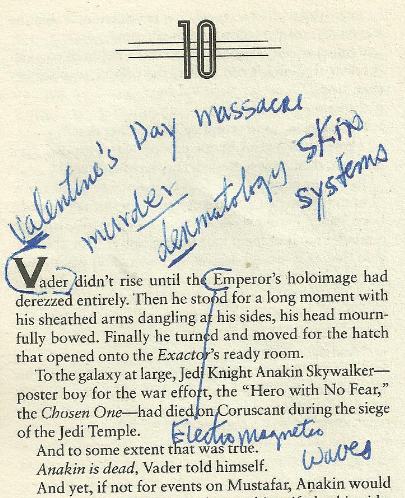 10
Valentine's Day massacre
murder
dermatology skin
systems
Vader didn't rise until the Emperor's holoimage had
derezzed entirely. Then he stood for a long moment with
his sheathed arms dangling at his sides, his head mourn-
fully bowed. Finally he turned and moved for the hatch
that opened onto the Exactor's ready room.
To the galaxy at large, Jedi Knight Anakin Skywalker—
poster boy for the war effort, the "Hero with No Fear,"
the Chosen One—had died on Coruscant during the siege
of the Jedi Temple.
Electromagnetic
And to some extent that was true.
waves
Anakin is dead, Vader told himself.
And yet, if not for events on Mustafar, Anakin would